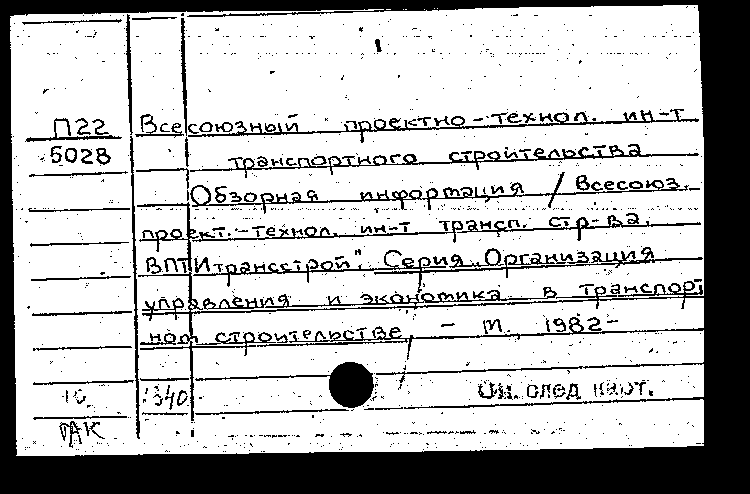 П22 Всесоюзный проектно-технол. ин-т
5028 транспортного строительства
Обзорная информация / Всесоюз.
проект.-технол. ин-т трансп. стр-ва.
ВПТИтрансстрой". Серия „Организация
управления и экономика в транспорт
ном строительстве, - М., 1982-
340 См. след карт.
ГАК